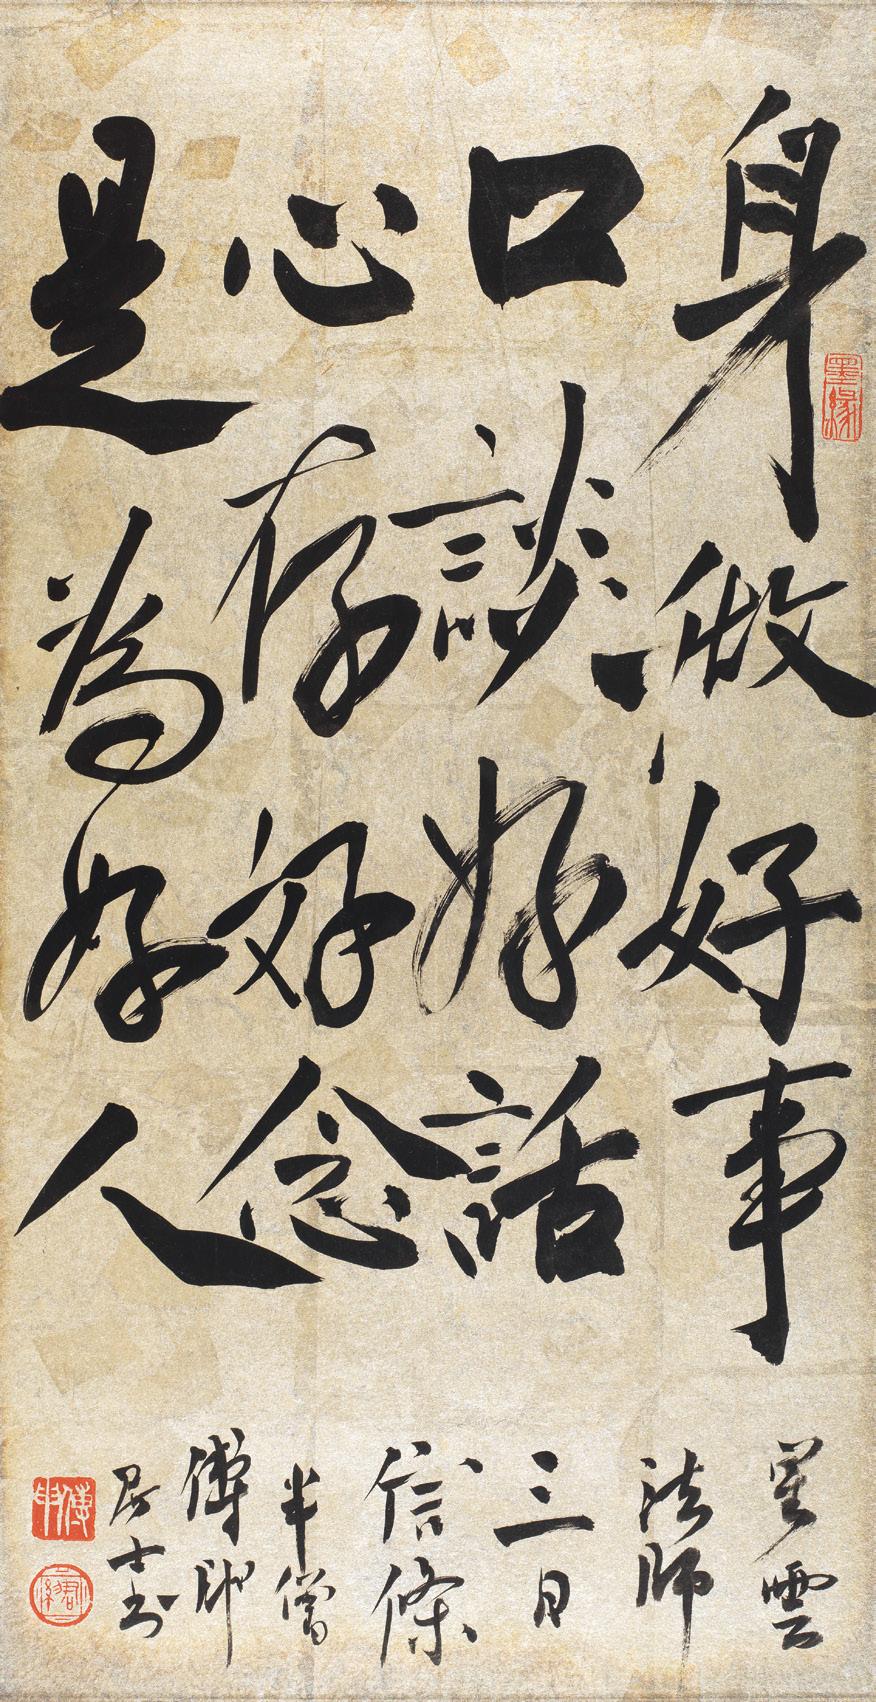 身做好事
口談好話
心存好念
是為好人
星雲
法師
三日
信條
半僧
傅申
居士書
墨緣